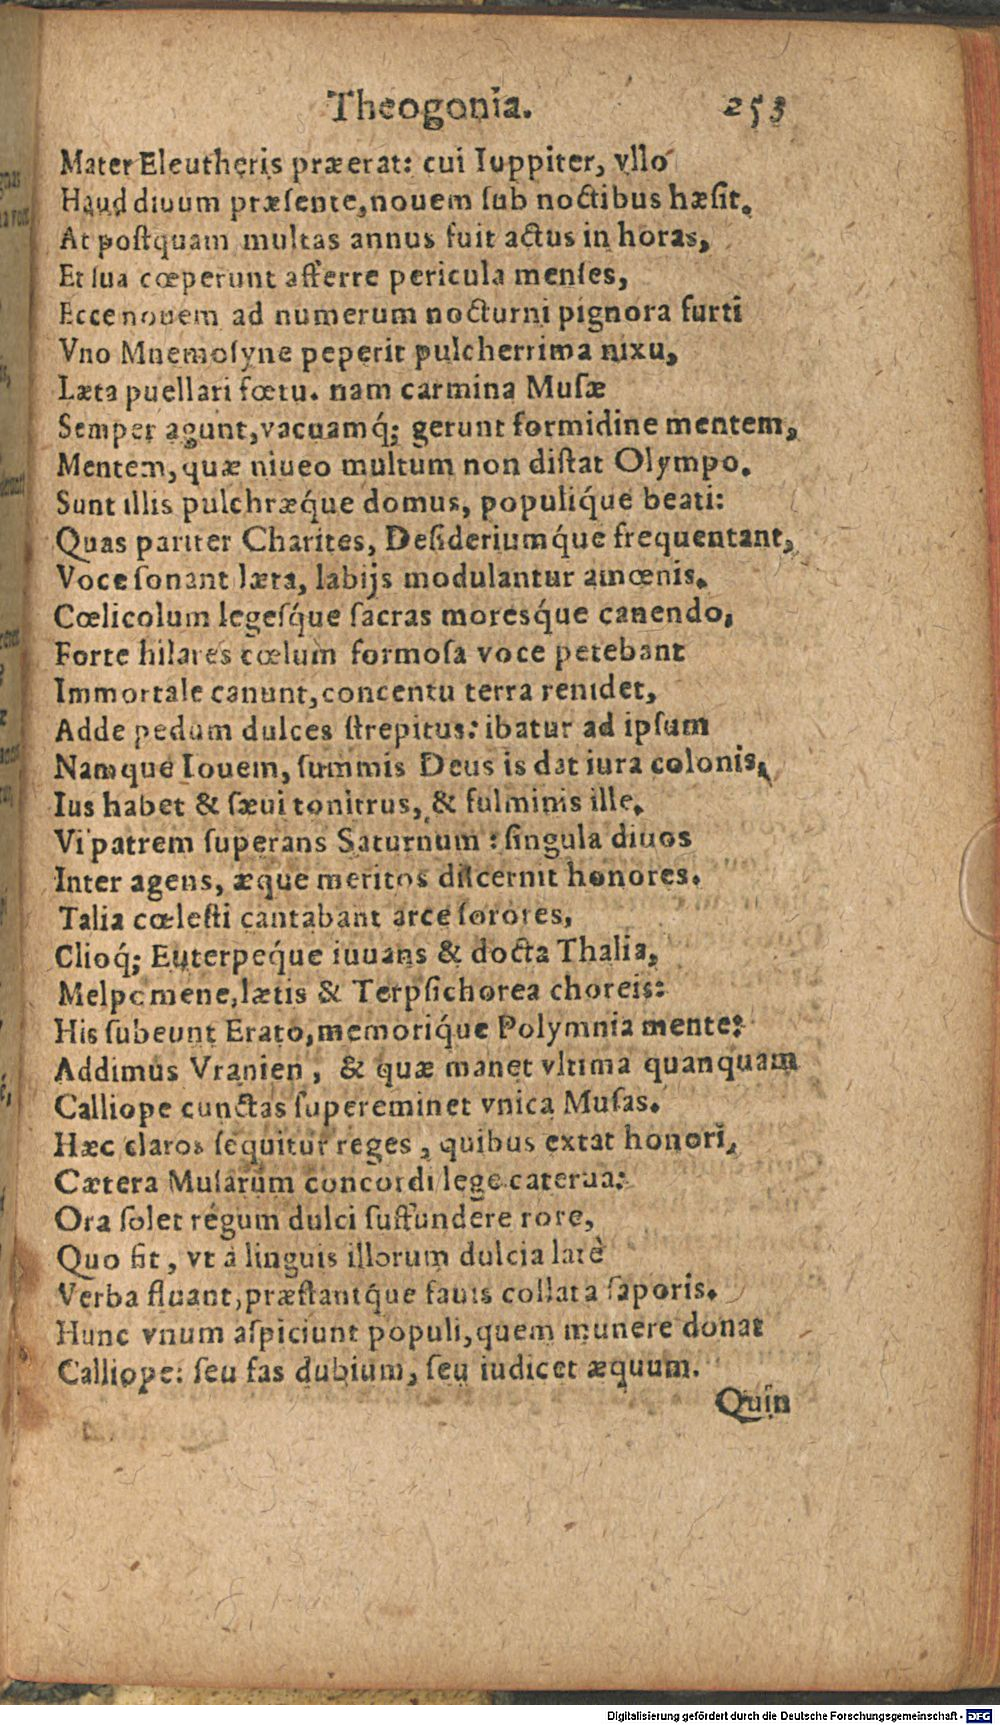 Theogonia. 253
Mater Eleutheris præerat: cui Iuppiter, vllo
Haud diuum præſente, nouem ſub noctibus hæſit.
At poſtquam multas annus fuit actus in horas,
Et ſua cœperunt afferre pericula menſes,
Ecce nouem ad numerum nocturni pignora furti
Vno Mnemoſyne peperit pulcherrima nixu,
Læta puellari fœtu. nam carmina Muſæ
Semper agunt, vacuamq́; gerunt formidine mentem,
Mentem, quæ niueo multum non diſtat Olympo.
Sunt illis pulchræq́ue domus, populiq́ue beati:
Quas pariter Charites, Deſideriumq́ue frequentant,
Voce ſonant læta, labijs modulantur amœnis.
Cœlicolum legeſq́ue ſacras moresq́ue canendo,
Forte hilares cœlum formoſa voce petebant
Immortale canunt, concentu terra renidet,
Adde pedum dulces ſtrepitus: ibatur ad ipſum
Namque Iouem, ſummis Deus is dat iura colonis,
Ius habet & ſæui tonitrus, & fulminis ille.
Vi patrem ſuperans Saturnum : ſingula diuos
Inter agens, æque meritos diſcernit honores.
Talia cœleſti cantabant arce ſorores,
Clioq́; Euterpeq́ue iuuans & docta Thalia,
Melpomene, lætis & Terpſichorea choreis:
His ſubeunt Erato, memoriq́ue Polymnia mente:
Addimus Vranien, & quæ manet vltima quanquam
Calliope cunctas ſupereminet vnica Muſas.
Hæc claros ſequitur reges, quibus extat honori,
Cætera Muſarum concordi lege caterua:
Ora ſolet regum dulci ſuffundere rore,
Quo fit, vt à linguis illorum dulcia latè
Verba fluant, præſtantq́ue fauis collata ſaporis.
Hunc vnum aſpiciunt populi, quem munere donat
Calliope: ſeu fas dubium, ſeu iudicet æquum.
Quin
Digitalisierung gefördert durch die Deutsche Forschungsgemeinschaft - DFG